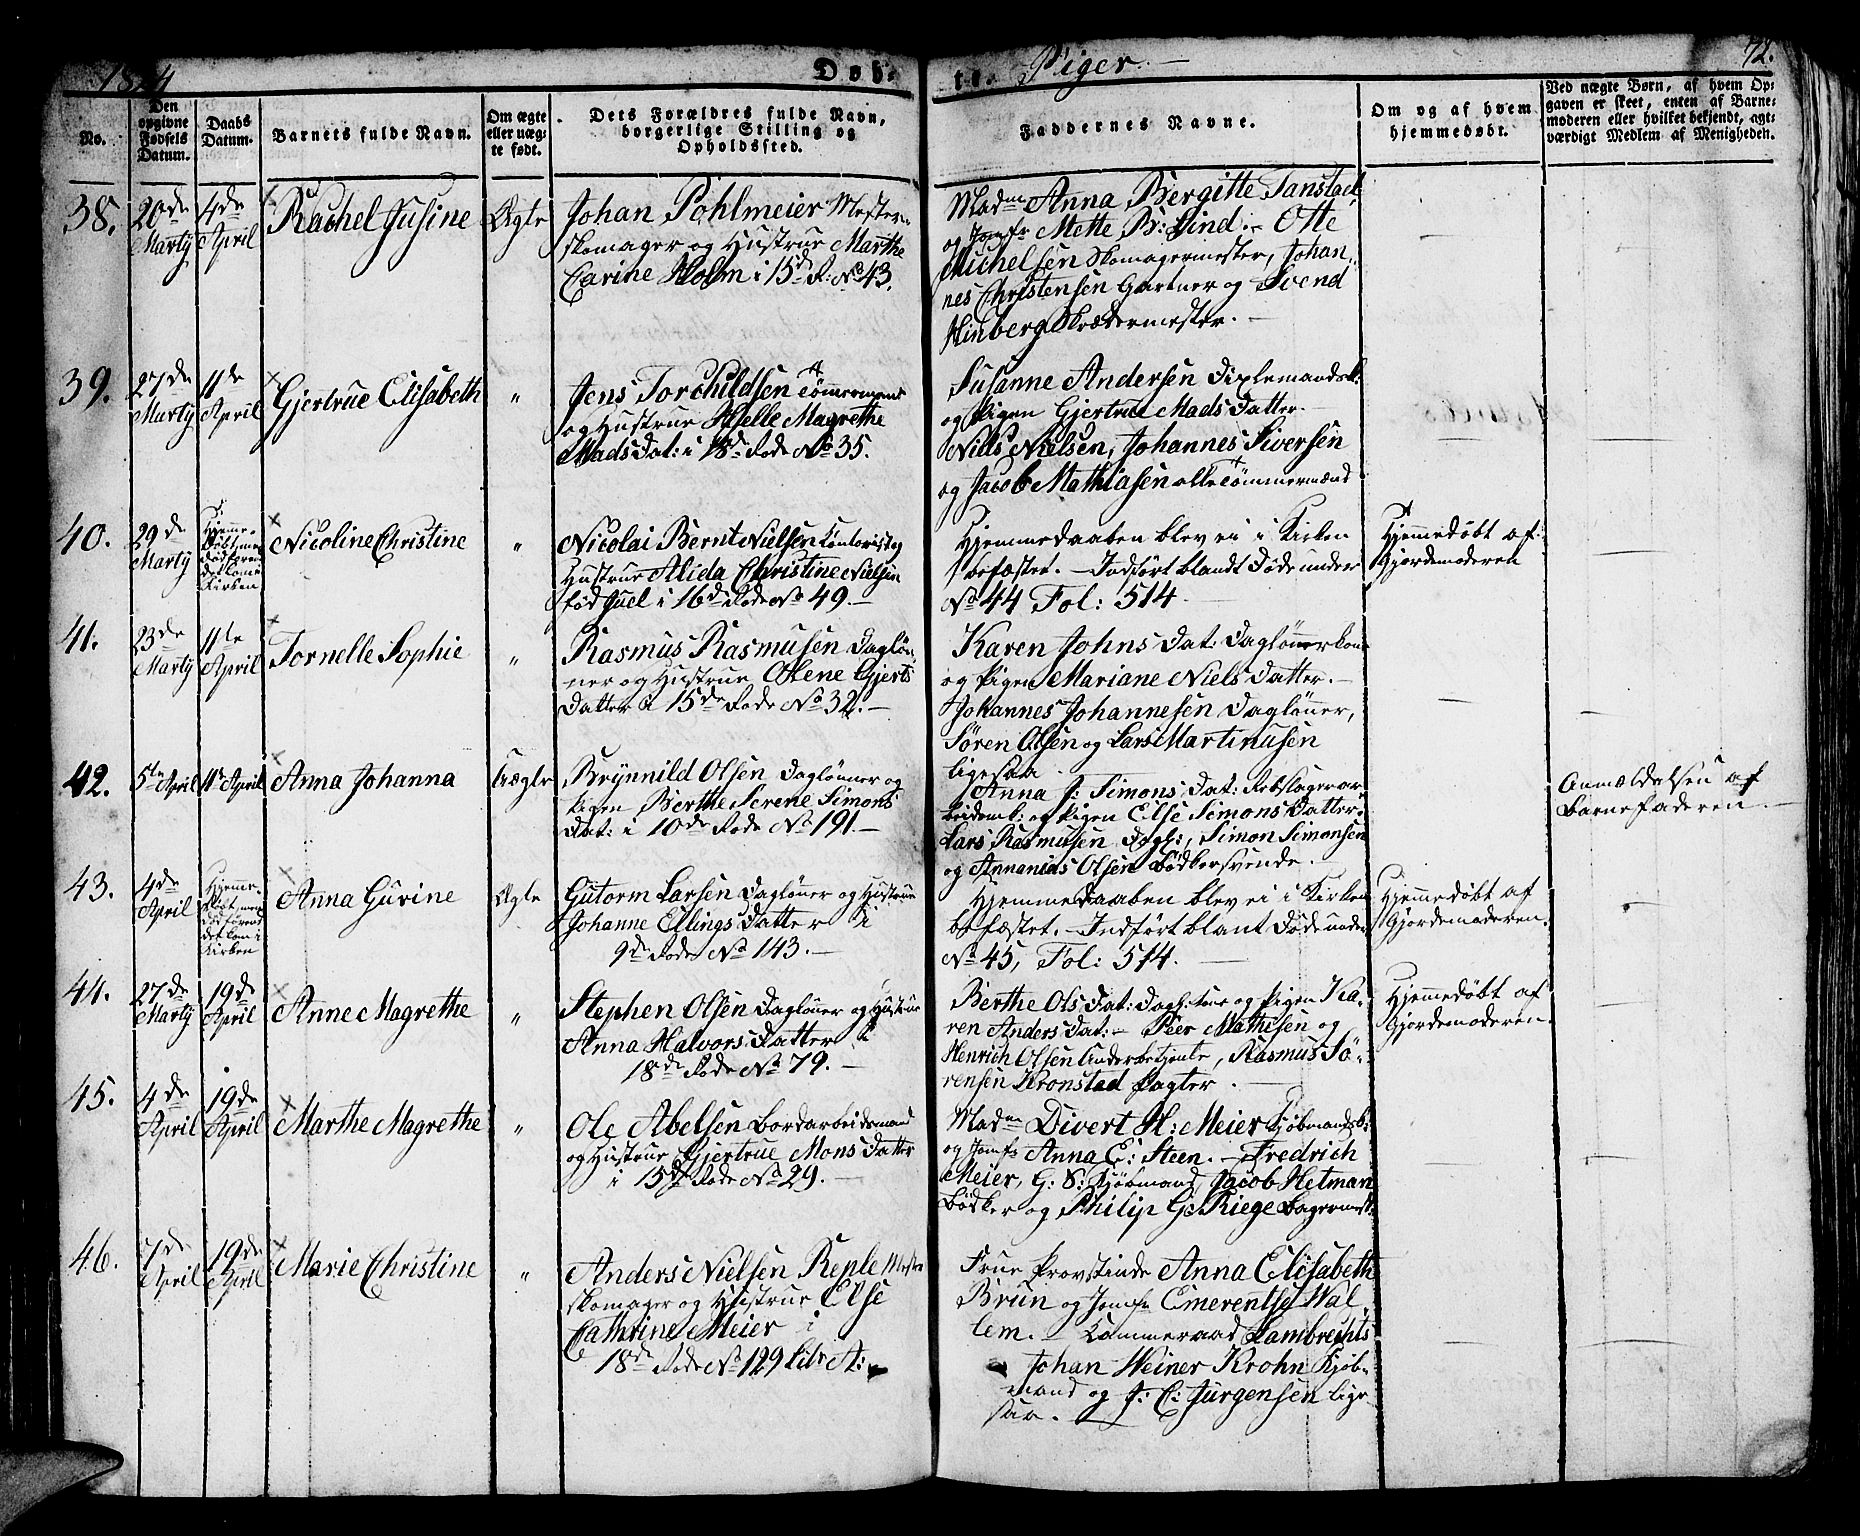 1824
Døb-
te. Piger.
72.
No.
Den opgivne Fødsels Datum.
Daabs Datum.
Barnets fulde Navn.
Om ægte eller uæg-te født.
Dets Forældres fulde Navn, borgerlige Stilling og Opholdssted.
Faddernes Navne.
Om og af hvem hjemmedøbt.
Ved uægte Børn, af hvem Op-
gaven er skeet, enten af Barne-
moderen eller hvilket bekjendt, agt-
værdigt Medlem af Menigheden.
38.
20de Martÿ
4de April
Rachel Jusine
Ægte
Johan Pohlmeier Mester-
skomager og Hustrue Marthe
Carine Holm i 15de R: No 43.
Madm Anna Bergitte Tanstad,
og Jomfr Mette B: Lind. - Otte
Michelsen Skomagermester, Johan-
nes Christensen Gartner og Svend
Hinberg Skrædermester. -
39.
27de Martÿ
11te April
Gjertrue Elisabeth
"
Jens Torchildsen Tömermand
og Hustrue Helle Magrethe
Mads Dat: i 18de Rode No 35.
Susanne Andersen
og Pigen Gjertrue Mads Datter. -
Niels Nielsen, Johannes Siversen
og Jacob Mathiasen alle Tömmermænd
40.
29de Martÿ
Hjemme-
døbt men
død foren
det kom i
Kirken
Nicoline Christine
"
Nicolai Bernt Nielsen Kontorist og
Hustrue Alida Christine Nielsen
fød Juel i 16de Rode No 49. -
Hjemmedaaben blev ei i Kirken
befæstet. - Indført blandt Døde under
No 44 Fol: 514
Hjemmedøbt af
Gjordemoderen
41.
23de Martÿ
11te April
Tornelle Sophie
"
Rasmus Rasmusen Dagløn-
ner og Hustrue Olene Gjerts
Datter i 15de Rode No 32. -
Karen Johns Dat: Daglönerkone
og Pigen Mariane Niels Datter. -
Johannes Johannesen Daglöner,
Sören Olsen og Lars Martinusen
ligesaa
42.
5te April
11te April
Anna Johanna
Uægte
Brÿnnild Olsen Daglönner og
Pigen Berthe Serene Simons
Dat: i 10de Rode No 191. -
Anna J: Simons Dat: Rebslagerar-
beidermk: og Pigen Else Simons Datter.
Lars Rasmusen Dagl:, Simon Simonsen
og Annanias Olsen Bödkersvende. -
Anmeldelsen af
Barnefaderen. -
43.
4de April
Hjemme-
døbt, men
død forend
det kom i
Kirken
Anna Gurine
Ægte
Gutorm Larsen Daglöner og Hustrue
Johanne Ellings Datter i
9de Rode No 143. -
Hjemmedaaben blev ei i Kirken
befæstet. - Indført blant Døde under
No 45, Fol: 514.
Hjemmedøbt af
Gjordemoderen.
44.
27de Martÿ
19de April
Anne Magrethe
"
Stephen Olsen Daglöner og Hustrue
Anna Halvors Datter i
18de Rode No 79. -
Berthe Ols Dat: Dagl: kone og Pigen Ka-
ren Anders Dat: - Peer Mathesen og
Henrich Olsen Underbetjente, Rasmus Sö-
rensen Kronstad Pagter. -
Hjemedøbt af
Gjordemoderen.
45.
4de April
19de April
Marthe Magrethe
"
Ole Abelsen Bordarbeidsmand
og Hustrue Gjertrue Mons Datter
i 15de Rode No 29. -
Madm Divert H: Meier Kjöbmandsk:
og Jomfr Anna E: Steen. - Fredrich
Meier, G: S: Kjöbmand, Jacob Hetman
Bödker og Philip G: Riege Bagermest:
46.
7de April
19de April
Marie Christine
"
Anders Nielsen Reple Mester
skomager og Hustrue Else
Cathrine Meier i
18de Rode No 129 Litr A: -
Frue Provstinde Anna Elisabeth
Brun og Jomfr Emerentse Wal-
lem. - Kammeraad Lambrechts
Johan Weiner Krohn Kjöb-
mand og J: C: Jürgensen lige-
saa. -